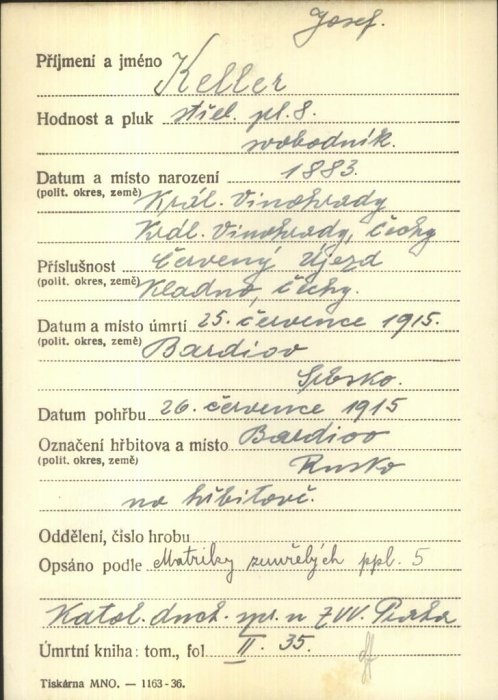 Josef.
Příjmení a jméno Keller
Hodnost a pluk střel. pl. 8.
svobodník.
Datum a místo narození 1883.
(polit. okres, země) Král. Vinohrady
Král. Vinohrady, Čechy
Příslušnost Červený Újezd
(polit. okres, země) Kladno, Čechy.
Datum a místo úmrtí 25. července 1915.
(polit. okres, země) Bardiov
Srbsko.
Datum pohřbu 26. července 1915
Označení hřbitova a místo Bardiov
(polit. okres, země) Rusko
na hřbitově.
Oddělení, číslo hrobu
Opsáno podle Matriky zemřelých ppl. 5
Katol. duch. spr. u ZVV. Praha
Úmrtní kniha: tom., fol. II. 35.
Tiskárna MNO. — 1163-36.